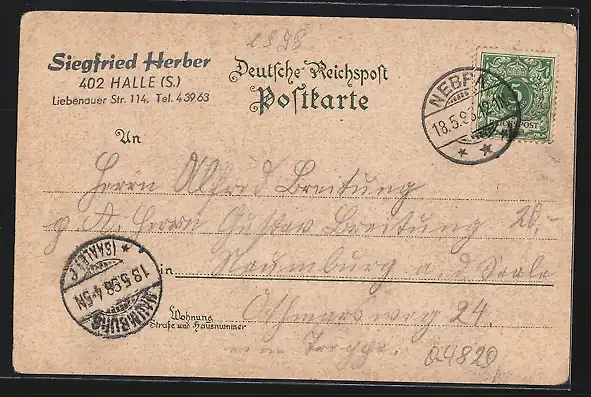 1898
Siegfried Herber
402 HALLE (S.)
Liebenauer Str. 114, Tel. 43963
Deutsche Reichspost
Postkarte
NEBRA
18.5.98
REICHSPOST
An
Herrn Alfred Breitung
p. A. Herrn Gustav Breitung 20,-
in Naumburg a/d Saale
NAUMBURG
(SAALE)
18.5.98 4-5N
Wohnung
Straße und Hausnummer
Othmarsweg 24.
eine Treppe. 04820